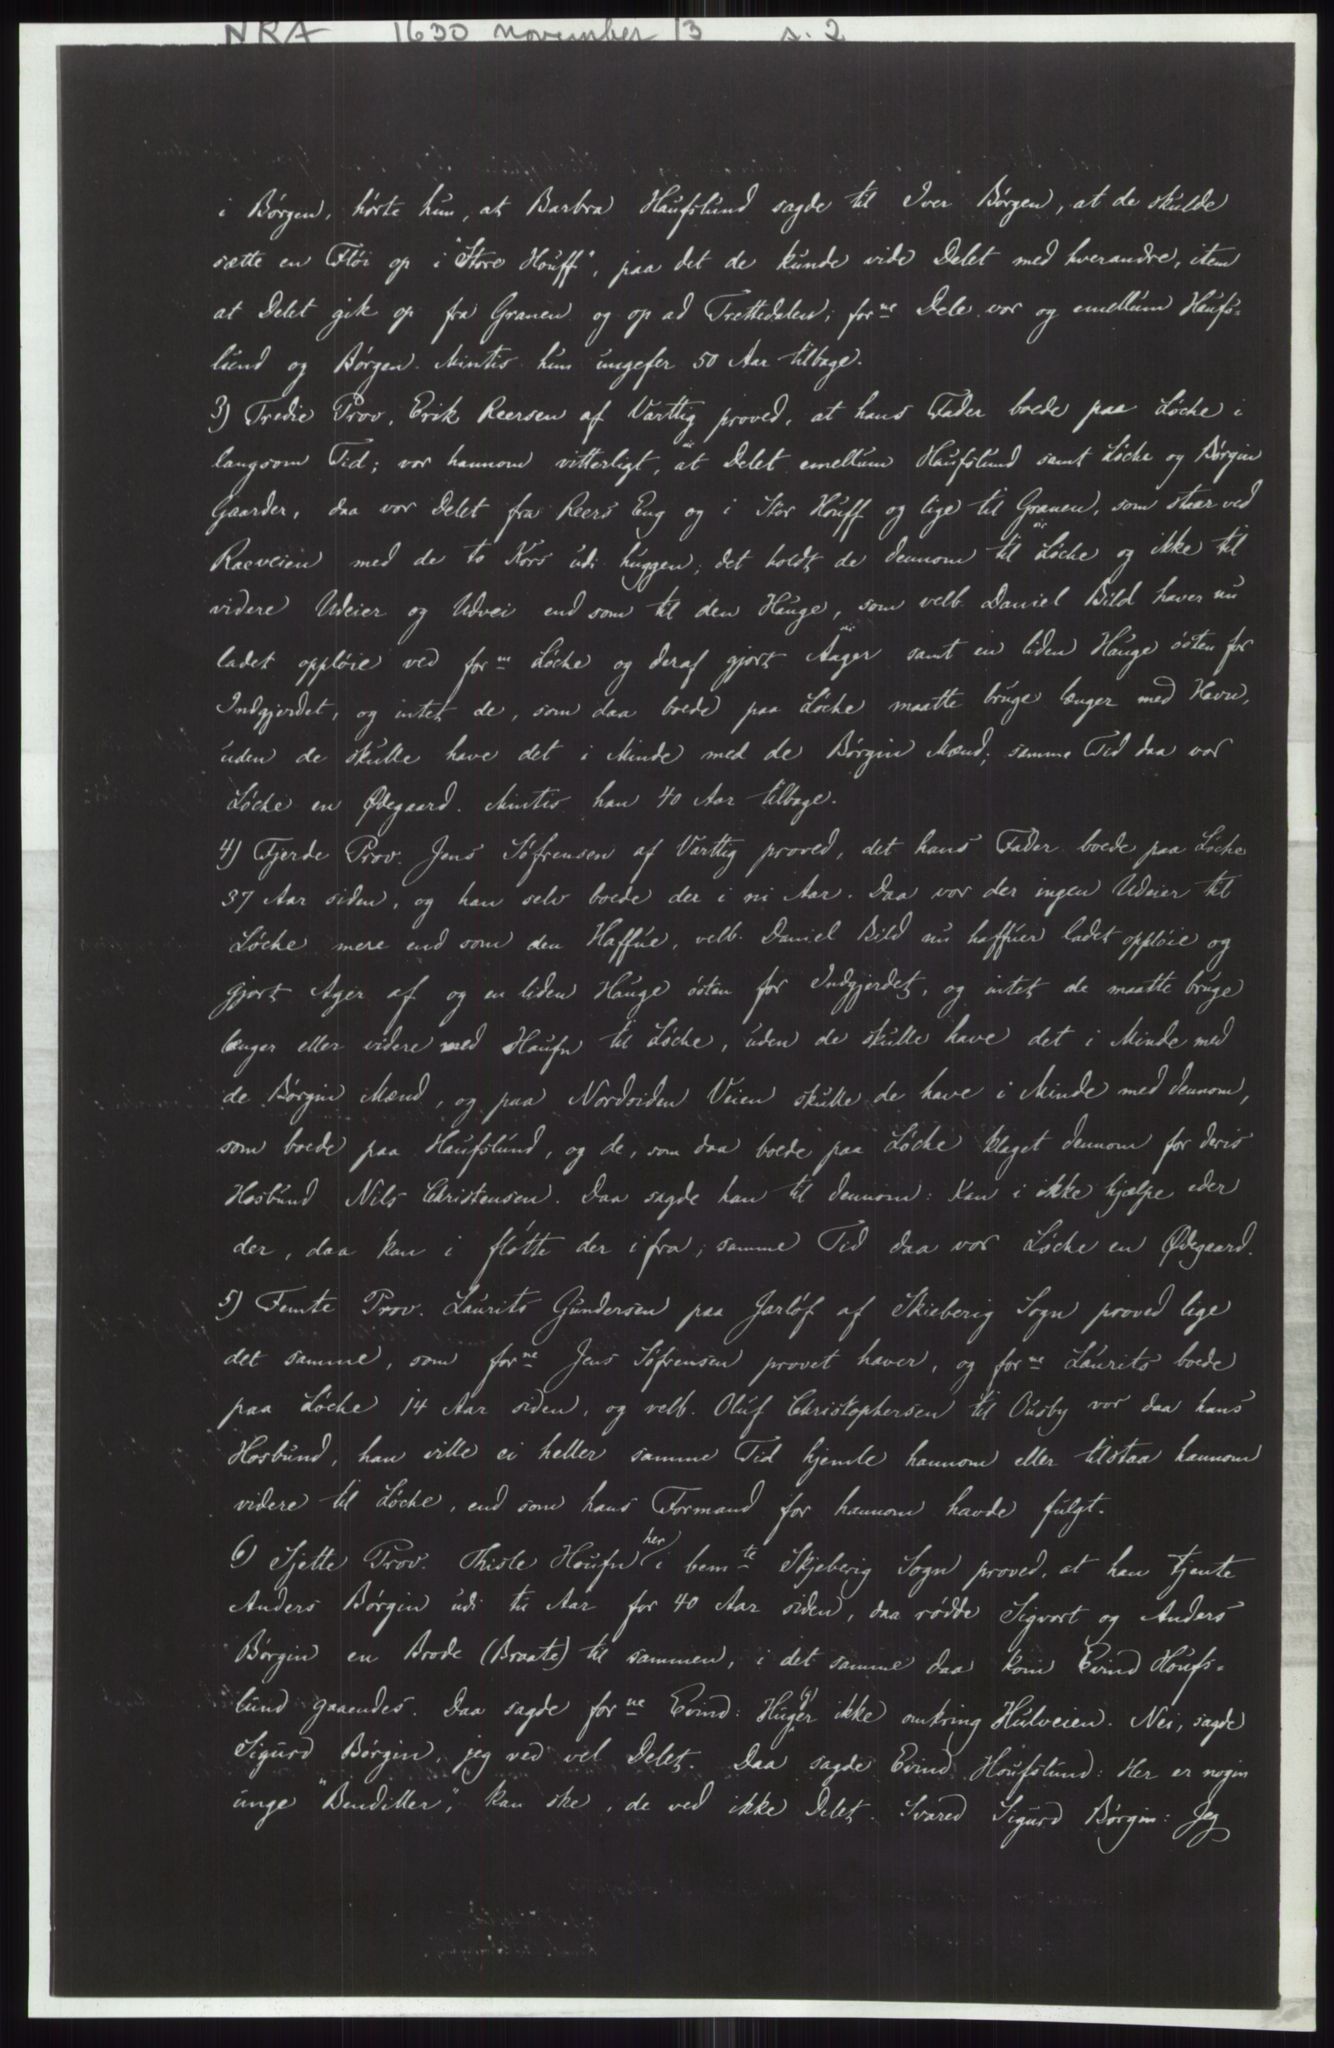 NRA 1630 november 13 s. 2
i Børgen, hørte hun, at Barbra Haufslund sagde til Iver Børgen, at de skulde
sætte en Fløi op i "Store Houff", paa det de kunde vide Delet med hverandre, item
at Delet gik op fra Granen og op ad Trettedalen; forne Dele vor og emellum Haufs-
lund og Børgen. Mintis hun ungefer 50 Aar tilbage.
3) Tredie Prov, Erik Reersen af Varttig proved, at hans Fader boede paa Løche i
langsom Tid; vor hannom vitterligt, at Delet emellum Haufslund samt Løche og Børgin
Gaarder, daa vor Delet fra Reers Eng og i Stor Houff og lige til Granen, som staar ved
Raeveien med de to Kors udi huggen; det holdt de dennom til Løche og ikke til
videre Udeier og Udvei end som til den Hauge, som velb. Daniel Bild haver nu
ladet oppløie ved forne Løche og deraf gjort Aager samt en liden Hauge østen for
Indgjerdet, og intet de, som daa boede paa Løche maatte bruge lenger med Havn,
uden de skulle have det i Minde med de Børgin Mænd; samme Tid daa vor
Løche en Ødegaard. Mintis han 40 Aar tilbage.
4) Fjerde Prov. Jens Søfrensen af Varttig proved, det hans Fader boede paa Løche
37 Aar siden, og han selv boede der i ni Aar. Daa vor der ingen Udeier til
Løche mere end som den Haffue, velb. Daniel Bild nu haffuer ladet oppløie og
gjort Ager af og en liden Hauge østen for Indgjerdet, og intet de maatte bruge
lenger eller videre med Haufn til Løche, uden de skulle have det i Minde med
de Børgin Mænd, og paa Nordsiden Veien skulle de have i Minde med dennom,
som boede paa Haufslund, og de, som daa boede paa Løche klaget dennom for deris
Hosbund Nils Christensen. Daa sagde han til dennom: Kan i ikke hjælpe eder
der, daa kan i fløtte der ifra; samme Tid daa vor Løche en Ødegaard.
5) Femte Prov. Laurits Gundersen paa Jarløf af Skieberig Sogn proved lige
det samme, som forne Jens Søfrensen provet haver, og forne Laurits boede
paa Løche 14 Aar siden, og velb. Oluf Christophersen til Ousby vor daa hans
Hosbund, han ville ei heller samme Tid hjemle hannom eller tilstaa hannom
videre til Løche, end som hans Formand for hannom havde fulgt.
6) Sjette Prov. Thiste Houfn her i bemte Skjeberig Sogn proved, at han tjente
Anders Børgin udi tu Aar for 40 Aar siden, daa rødde Sigvort og Anders
Børgin en Brode (Braate) til sammen, i det samme daa kom Evind Houfs-
lund gaaendes. Daa sagde forne Evind: Hug(g)er ikke omkring Hulveien. Nei, sagde
Sigurd Børgin, jeg ved vel Delet. Daa sagde Evind Houfslund: Her er nogin
unge "Bendiller", kan ske, de ved ikke Delet. Svared Sigurd Børgin: Jeg